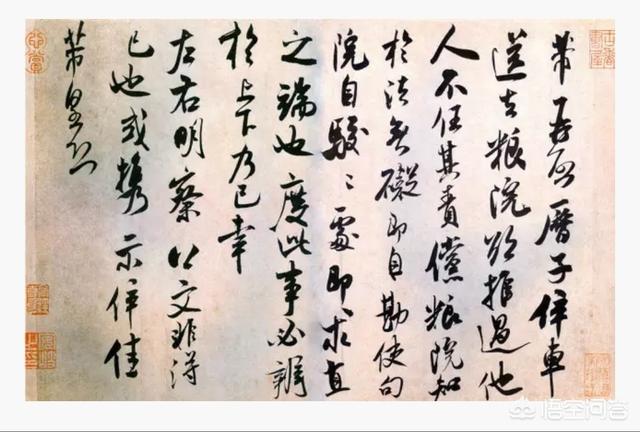 芾再啓曆子倅車
送去粮院欲推過他
人不任其責儻粮院知
於法無礙即自勘使句
院自駮〻處即求直
之端也度此事必辨
於上下乃已幸
左右明察以文非得
已也或携示倅佳
芾皇恐
悟空问答